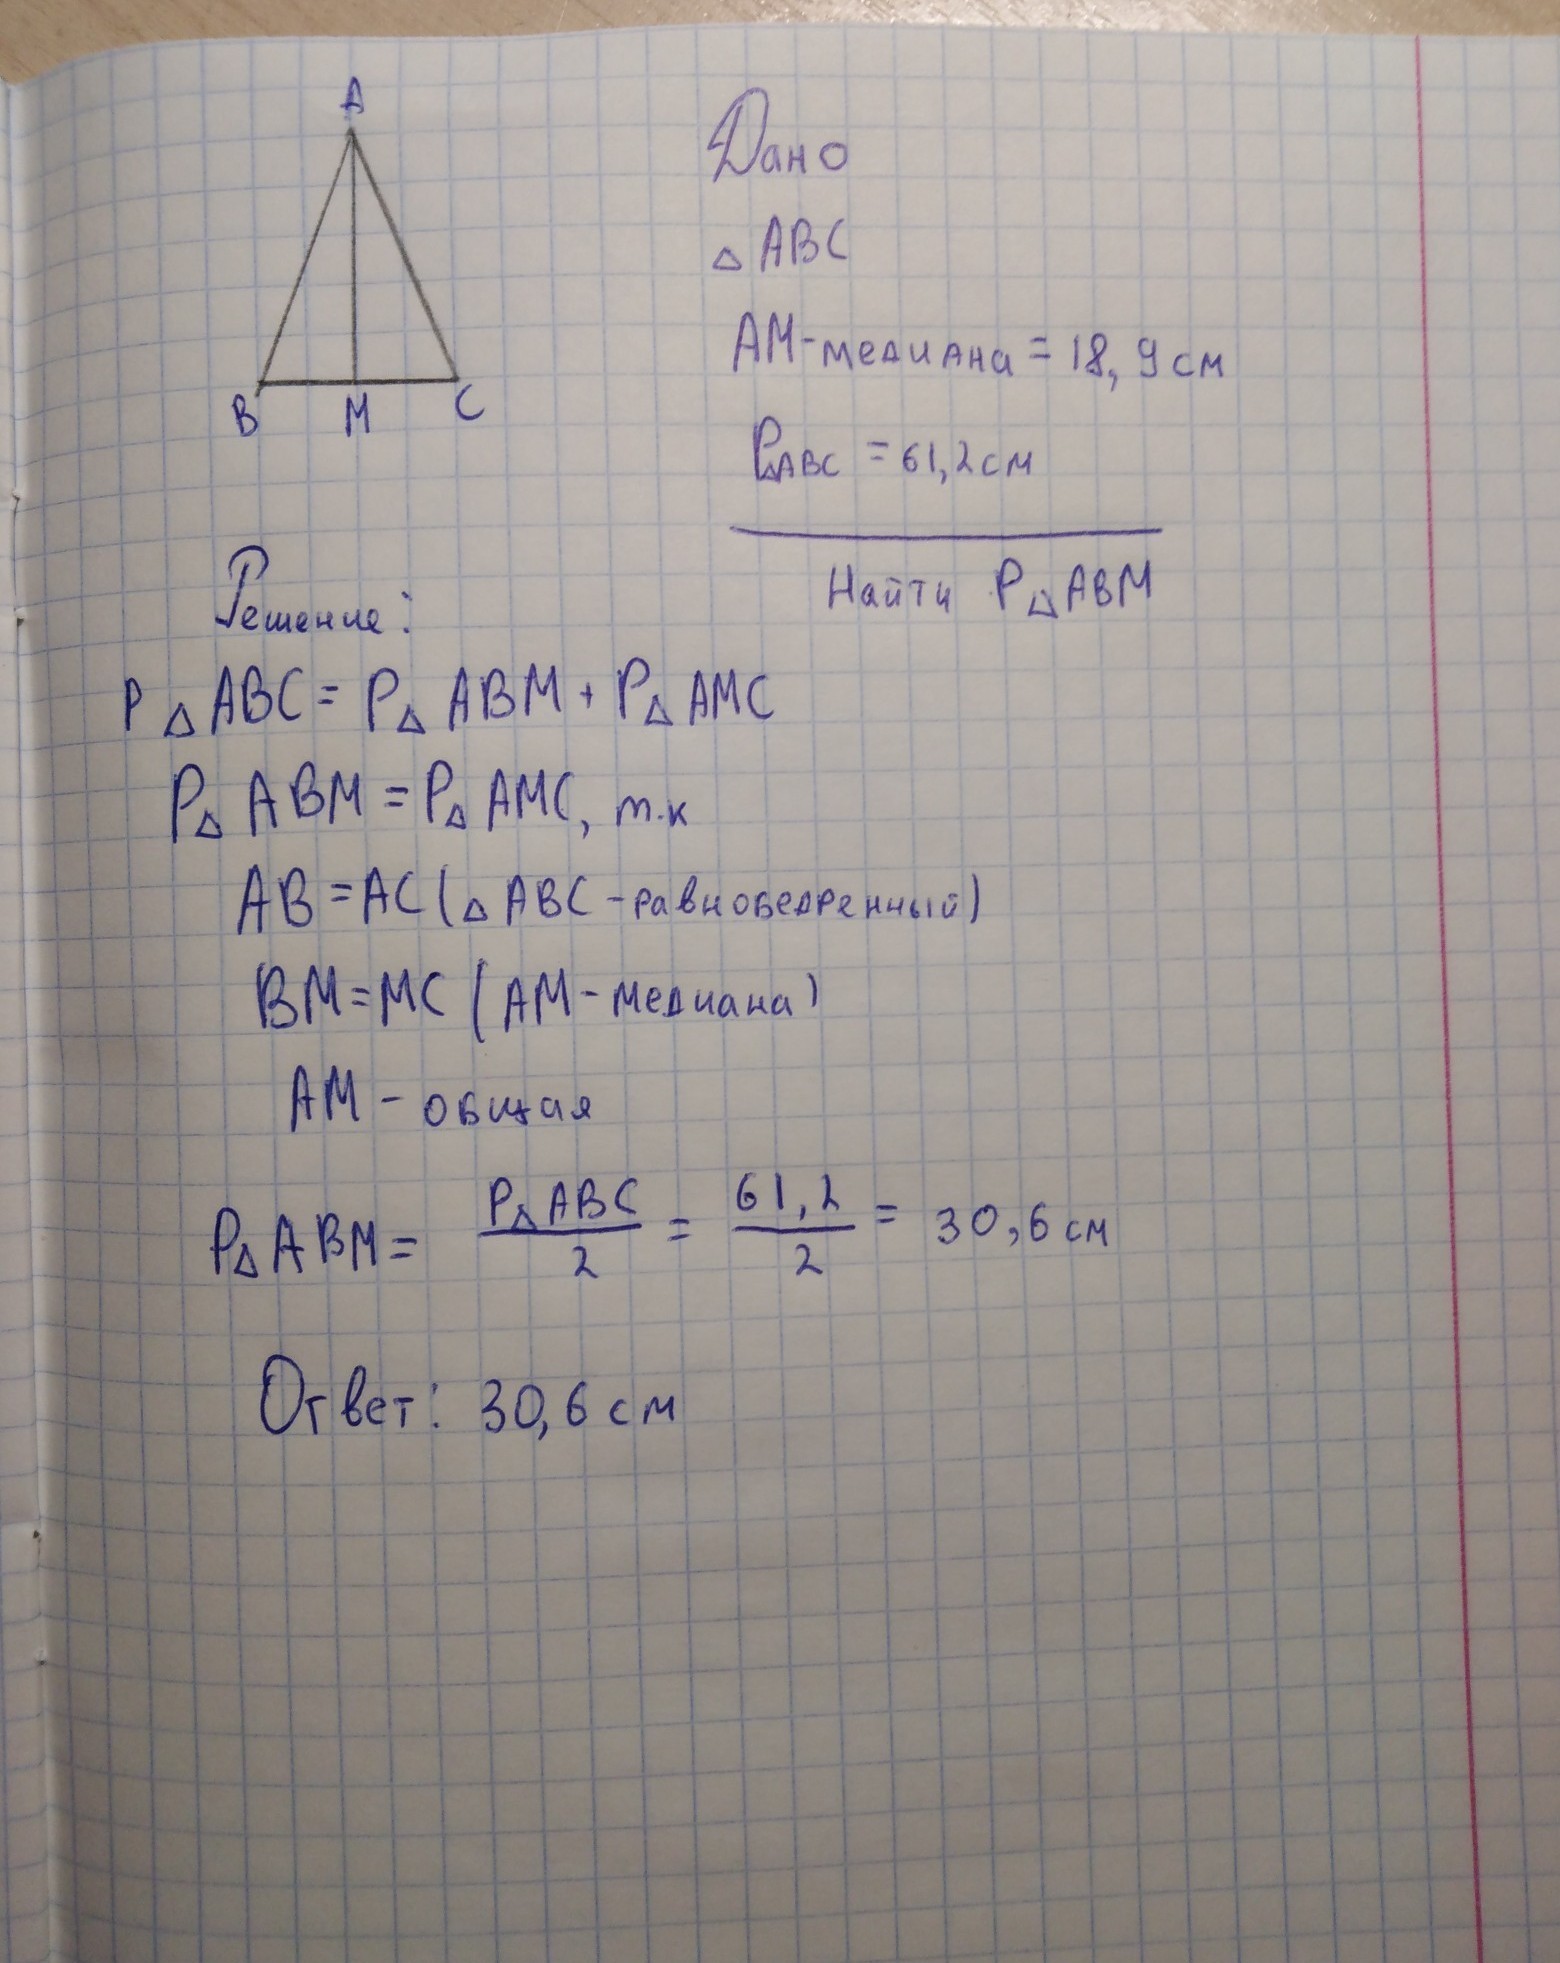 A
B M C
Дано
△ ABC
AM-медиана = 18,9 см
P△ABC = 61,2 см
Найти P△ABM
Решение:
P△ABC = P△ABM + P△AMC
P△ABM = P△AMC, т.к
AB = AC (△ABC - равнобедренный)
BM = MC (AM - медиана)
AM - общая
P△ABM = P△ABC/2 = 61,2/2 = 30,6 см
Ответ: 30,6 см